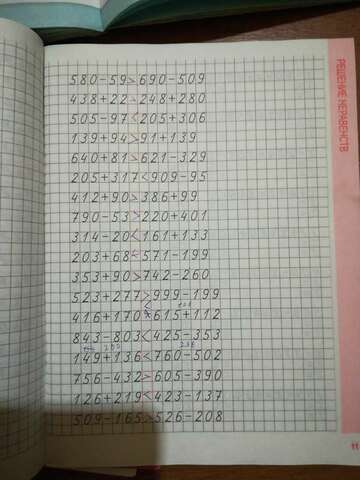 РЕШЕНИЕ НЕРАВЕНСТВ
580-59>690-509
438+22>248+280
505-97<205+306
139+94>91+139
640+81>621-329
205+317<909-95
412+90>386+99
790-53>220+401
314-20<161+133
203+68<571-199
353+90>742-260
523+277>999-199
416+170<615+112
843-803<425-353
149+136<760-502
756-432>605-390
126+219<423-137
509-165>526-208
11